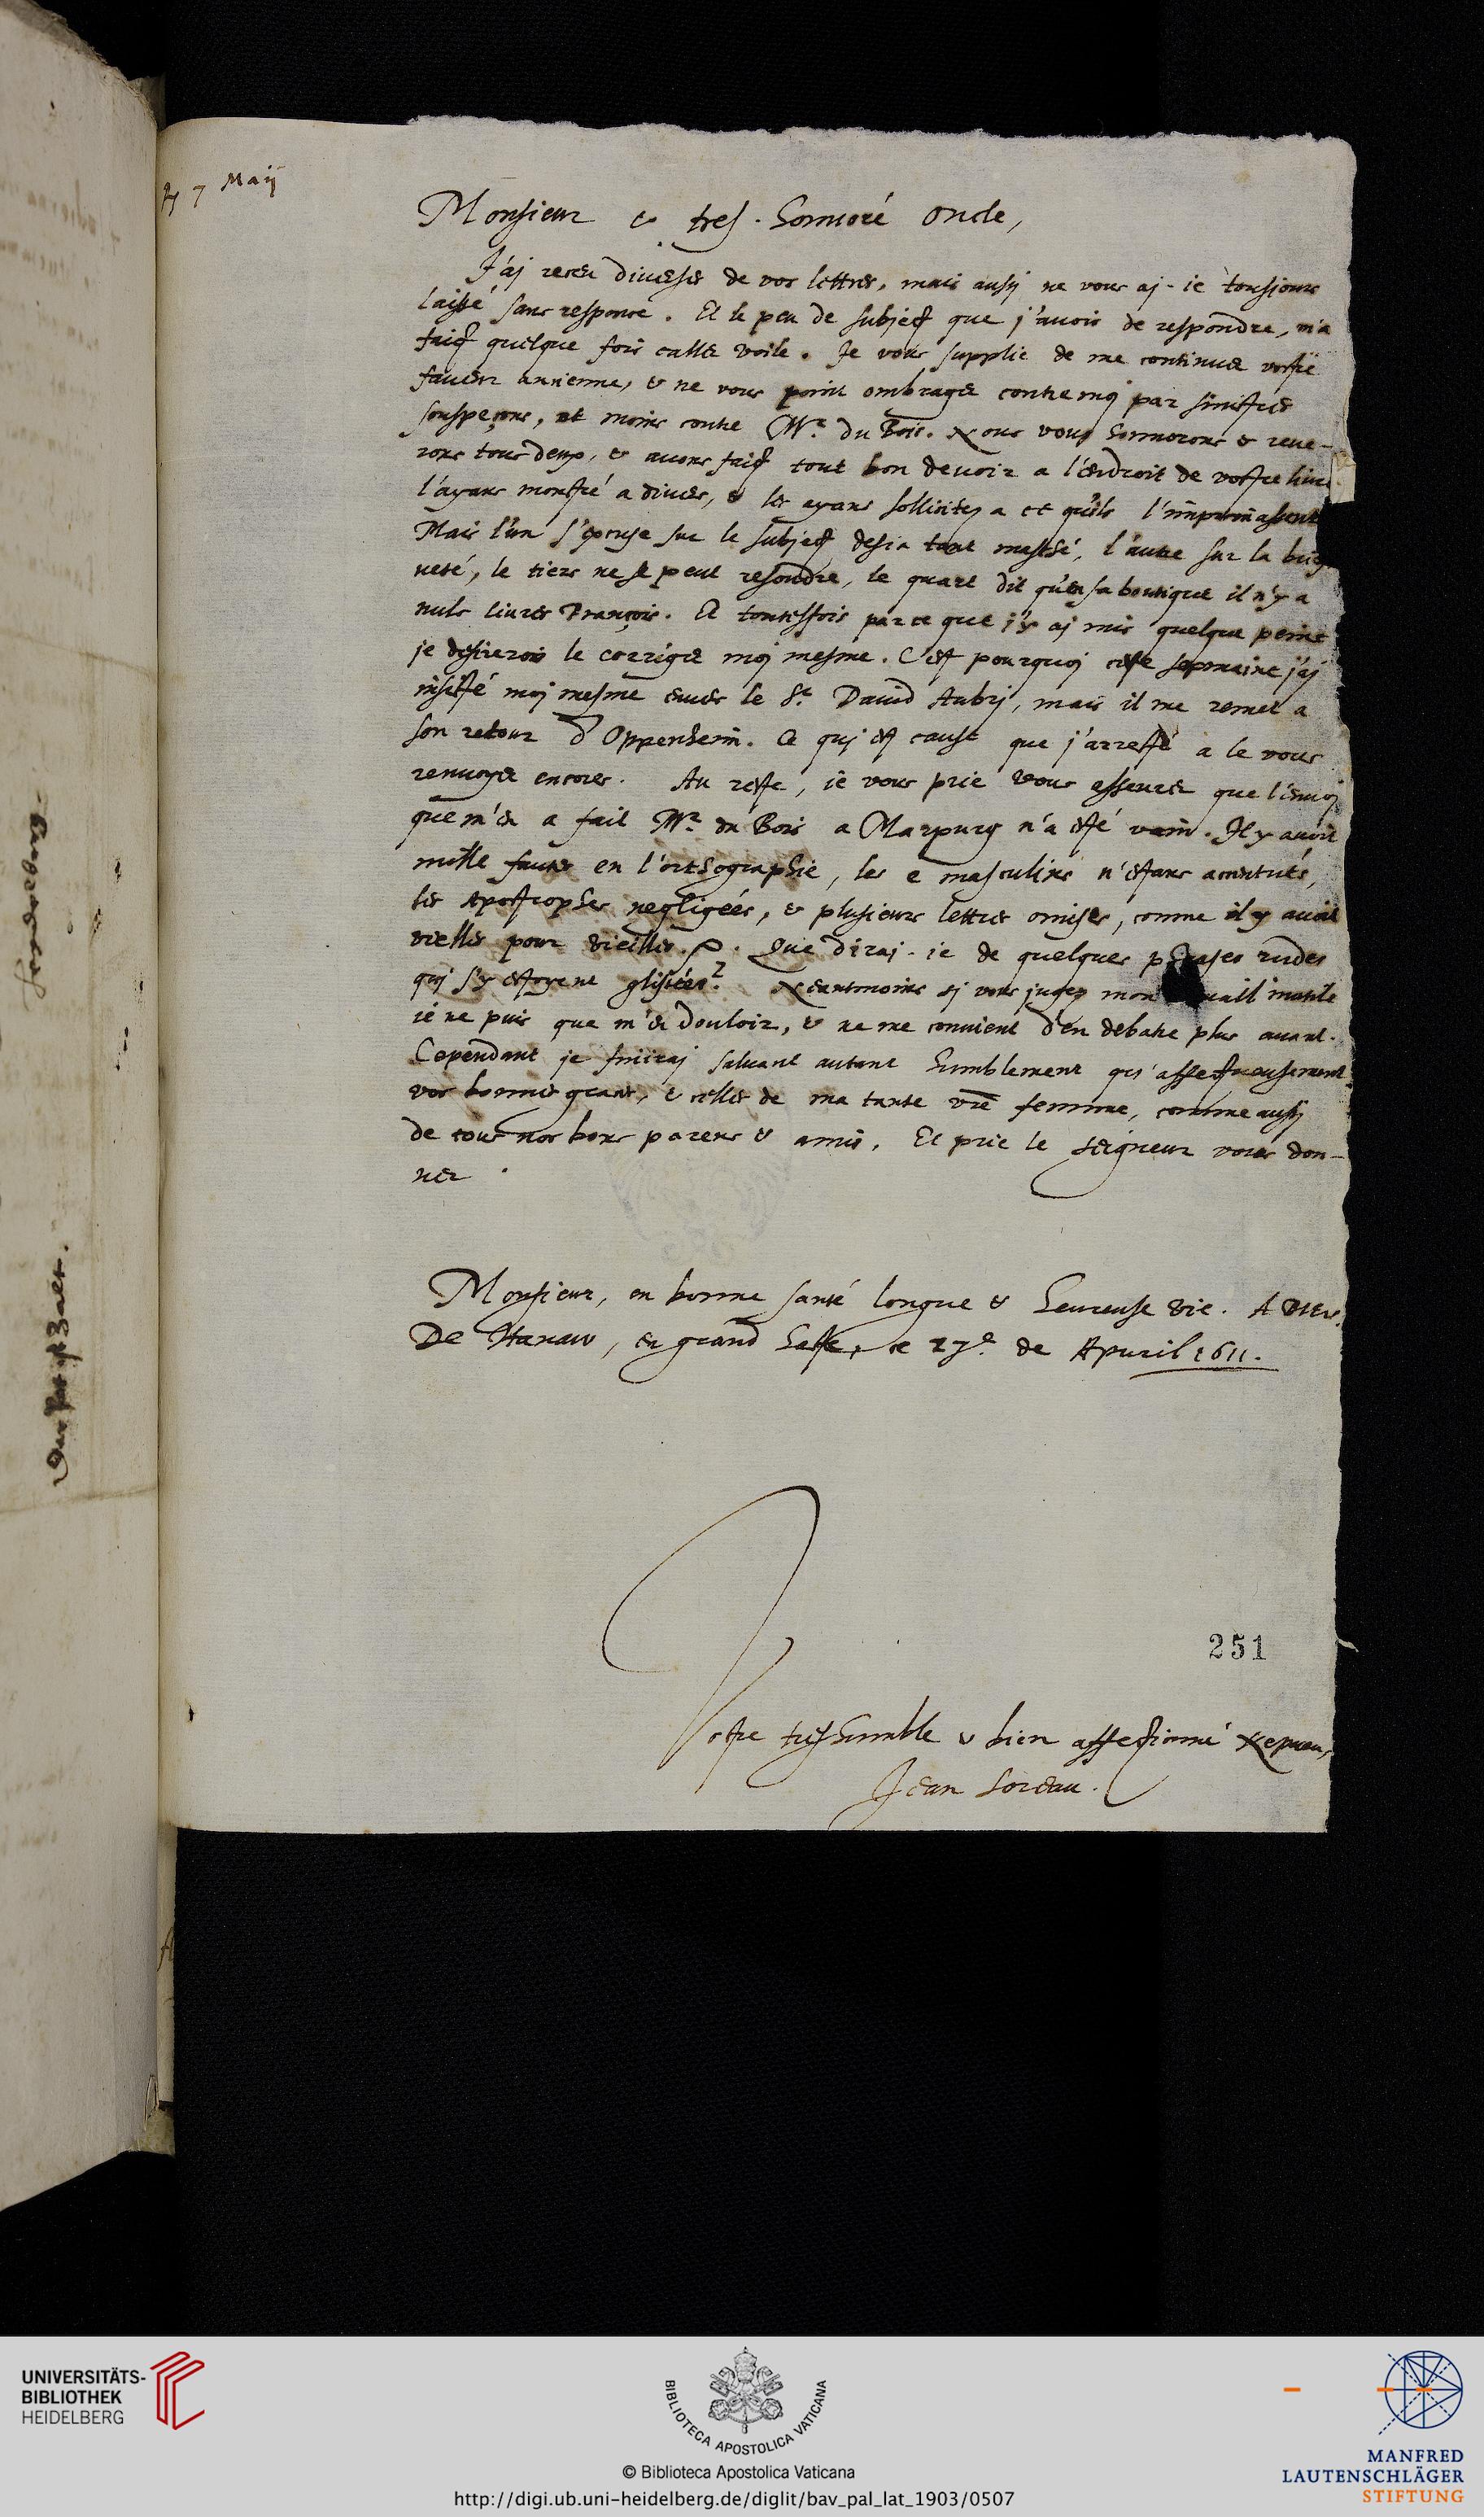 7 Maij
Monsieur & tres-honnoré oncle,
J'aj receu diverses de vos lettres, mais aussj ne vous aj-je tousjours
laissé sans response. Et le peu de subject que j'avois de respondre, m'a
faict quelque fois caller voile. Je vous supplie de me continuer vostre
faveur ancienne, & ne vous point ombrager contre moj par sinistres
souspeçons, et moins contre Mr. du Bois. Nous vous honnorons & reve-
rons tous deux, & avons faict tout bon devoir a l'endroit de vostre livre
l'ayans monstré a divers, & les ayans sollicitez a ce qu'ils l'imprimassent
Mais l'un s'excuse sur le subject desia tant masché, l'autre sur la brie
veté, le tiers ne se peut resoudre, le quart dit qu'en sa boutique il n'y a
nuls livres François. Et toutesfois par ce que j'y aj mis quelque peine
je desirerois le corriger moj mesme. C'est pourquoj ceste sepmaine j'aj
insisté moj mesme envers le Sr. David Aubrj, mais il me remet a
son retour d'Oppenheim. Ce quj est cause que j'arreste a le vous
renvoyer encores. Au reste, je vous prie vous asseurer que l'envoj
que m'en a fait Mr. du Bois a Marpurg n'a esté vain. Il y avoit
mille fautes en l'orthographie, les e masculins n'estans accentués,
les Apostrophes negligées, & plusieurs lettres omises, comme il y avoit
vielles pour vieilles. Que diraj-je de quelques phrases rudes
quj s'y estoyent glissées? Neantmoins sj vous jugez mon inutile
je ne puis que m'en douloir, & ne me convient d'en debatre plus avant.
Cependant je finiraj saluant autant humblement qu'affectueusement
vos bonnes graces, & celles de ma tante vre femme, comme aussj
de tous nos bons parens & amis. Et prie le seigneur vous don-
ner
Monsieur, en bonne santé longue & heureuse vie.
De Hanaw, en grand haste, ce 27e. de Apvril 1611.
251
Vostre treshumble & bien affectionné Nepveu,
Jean Soreau.
UNIVERSITÄTS-
BIBLIOTHEK
HEIDELBERG
BIBLIOTECA APOSTOLICA VATICANA
© Biblioteca Apostolica Vaticana
http://digi.ub.uni-heidelberg.de/diglit/bav_pal_lat_1903/0507
MANFRED
LAUTENSCHLÄGER
STIFTUNG